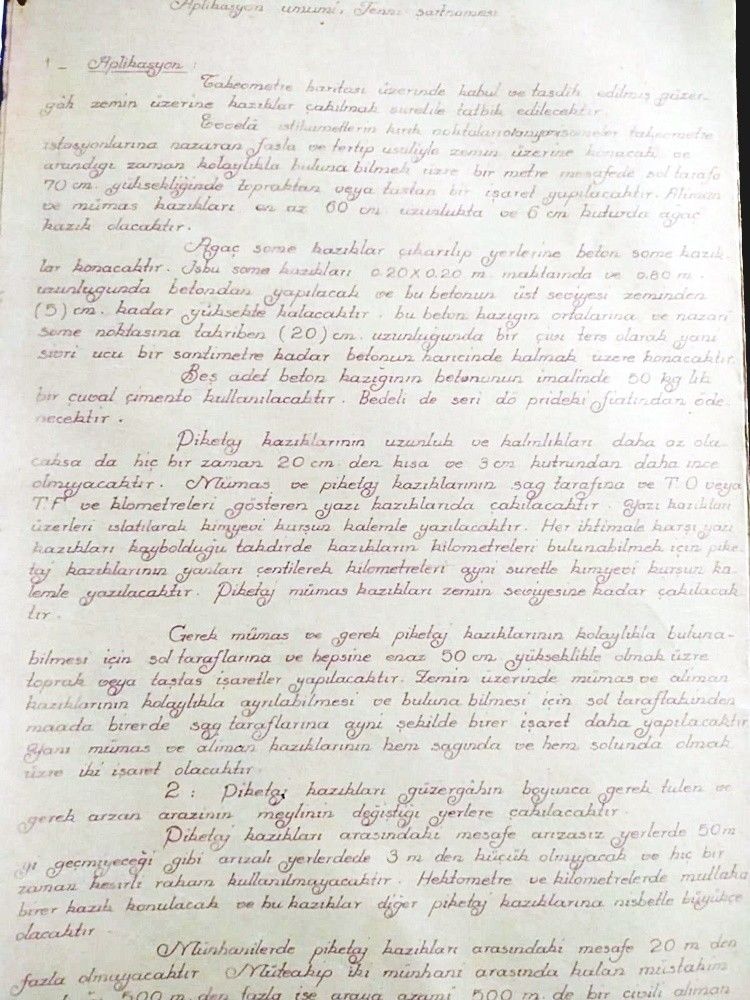 Aplikasyon umumi, Fenni şartnamesi
1 - Aplikasyon :
Takeometre haritası üzerinde kabul ve tasdik edilmiş güzer-
gâh zemin üzerine kazıklar çakılmak suretile tatbik edilecektir.
Evvelâ istikametlerin kırık noktaları someler takeometre
istasyonlarına nazaran fasla ve tertip usuliyle zemin üzerine konacak ve
arandığı zaman kolaylıkla buluna bilmek üzre bir metre mesafede sol tarafa
70 cm. yüksekliğinde topraktan veya taştan bir işaret yapılacaktır. Aliman
ve mümas kazıkları en az 60 cm uzunlukta ve 6 cm kuturda ağaç
kazık olacaktır.
Ağaç some kazıklar çıkarılıp yerlerine beton some kazık-
lar konacaktır. İşbu some kazıkları 0.20 x 0.20 m. maktaında ve 0.80 m.
uzunluğunda betondan yapılacak ve bu betonun üst seviyesi zeminden
(5) cm. kadar yüksekte kalacaktır. bu beton kazığın ortalarına ve nazari
some noktasına takriben (20) cm. uzunluğunda bir çivi ters olarak yani
sivri ucu bir santimetre kadar betonun haricinde kalmak üzere konacaktır
Beş adet beton kazığının betonunun imalinde 50 kg lık
bir çuval çimento kullanılacaktır. Bedeli de seri dö prideki fiatından öde-
necektir.
Piketaj kazıklarının uzunluk ve kalınlıkları daha az ola-
caksa da hiç bir zaman 20 cm. den kısa ve 3 cm kutrundan daha ince
olmıyacaktır. Mümas ve piketaj kazıklarının sağ tarafına ve T.O veya
T.F ve klometreleri gösteren yazı kazıklarıda çakılacaktır. Yazı kazıkları
üzerleri ıslatılarak kimyevi kurşun kalemle yazılacaktır. Her ihtimale karşı yazı
kazıkları kaybolduğu takdirde kazıkların kilometreleri bulunabilmek için pike-
taj kazıklarının yanları çentilerek kilometreleri ayni suretle kimyevi kurşun ka-
lemle yazılacaktır. Piketaj mümas kazıkları zemin seviyesine kadar çakılacak-
tır.
Gerek mümas ve gerek piketaj kazıklarının kolaylıkla buluna-
bilmesi için sol taraflarına ve hepsine enaz 50 cm. yükseklikte olmak üzre
toprak veya taştas işaretler yapılacaktır. Zemin üzerinde mümas ve aliman
kazıklarının kolaylıkla ayrılabilmesi ve buluna bilmesi için sol taraftakinden
maada birerde sağ taraflarına ayni şekilde birer işaret daha yapılacaktır
Yani mümas ve aliman kazıklarının hem sağında ve hem solunda olmak
üzre iki işaret olacaktır.
2 : Piketaj kazıkları güzergâhın boyunca gerek tulen ve
gerek arzan arazinin meylinin değiştiği yerlere çakılacaktır.
Piketaj kazıkları arasındaki mesafe arızasız yerlerde 50 m
yi geçmiyeceği gibi arızalı yerlerdede 3 m den küçük olmıyacak ve hiç bir
zaman kesirli rakam kullanılmayacaktır. Hektometre ve kilometrelerde mutlaka
birer kazık konulacak ve bu kazıklar diğer piketaj kazıklarına nisbetle büyükçe
olacaktır.
Münhanilerde piketaj kazıkları arasındaki mesafe 20 m den
fazla olmıyacaktır Müteakıp iki münhani arasında kalan müstakim
500 m. den fazla ise araya azami 500 m. de bir çivili aliman